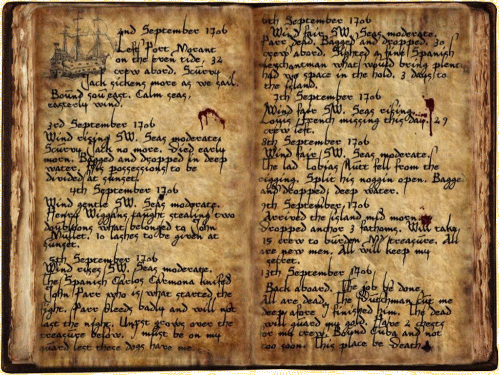 2nd September 1706
Left Port Morant
on the even tide, 32
crew abord. Scurvy
Jack sickens more as we sail.
Bound sou'east. Calm seas,
easterly wind.
3rd September 1706
Wind rising SW. Seas moderate.
Scurvy Jack no more. Died early
morn. Bagged and dropped in deep
water. His possessions to be
divided at sunset.
4th September 1706
Wind gentle SW. Seas moderate.
Henry Wiggans caught stealing two
doubloons what belonged to John
Mullet. 10 lashes to be given at
sunset.
5th September 1706
Wind rises SW. Seas moderate.
The Spanish Carlos Carmona knifed
John Parr who is what started the
fight. Parr bleeds badly and will not
last the night. Unrest grows over the
treasure below. I must be on my
guard lest these dogs have me.
6th September 1706
Wind fair, SW. Seas moderate.
Parr dead. Bagged and dropped. 30
crew abord. Sighted a fine Spanish
merchantman what would bring plenty
had we space in the hold. 3 days to
the island.
7th September 1706
Wind fair SW. Seas rising.
Louis French missing this day. 29
crew left.
8th September 1706
Wind fair SW. Seas moderate.
The lad Tobias Nutt fell from the
rigging. Split his noggin open. Bagged
and dropped, deep water.
9th September 1706
Arrived the island mid morn.
Dropped anchor 3 fathoms. Will take
15 crew to burden my treasure. All
are new men. All will keep my
secret.
13th September 1706
Back aboard. The job be done.
All are dead. The Dutchman cut me
deep afore I finished him. The dead
will guard my gold. Have 2 chests
or my crew. Bound Cuba and not
too soon. This place be Death.